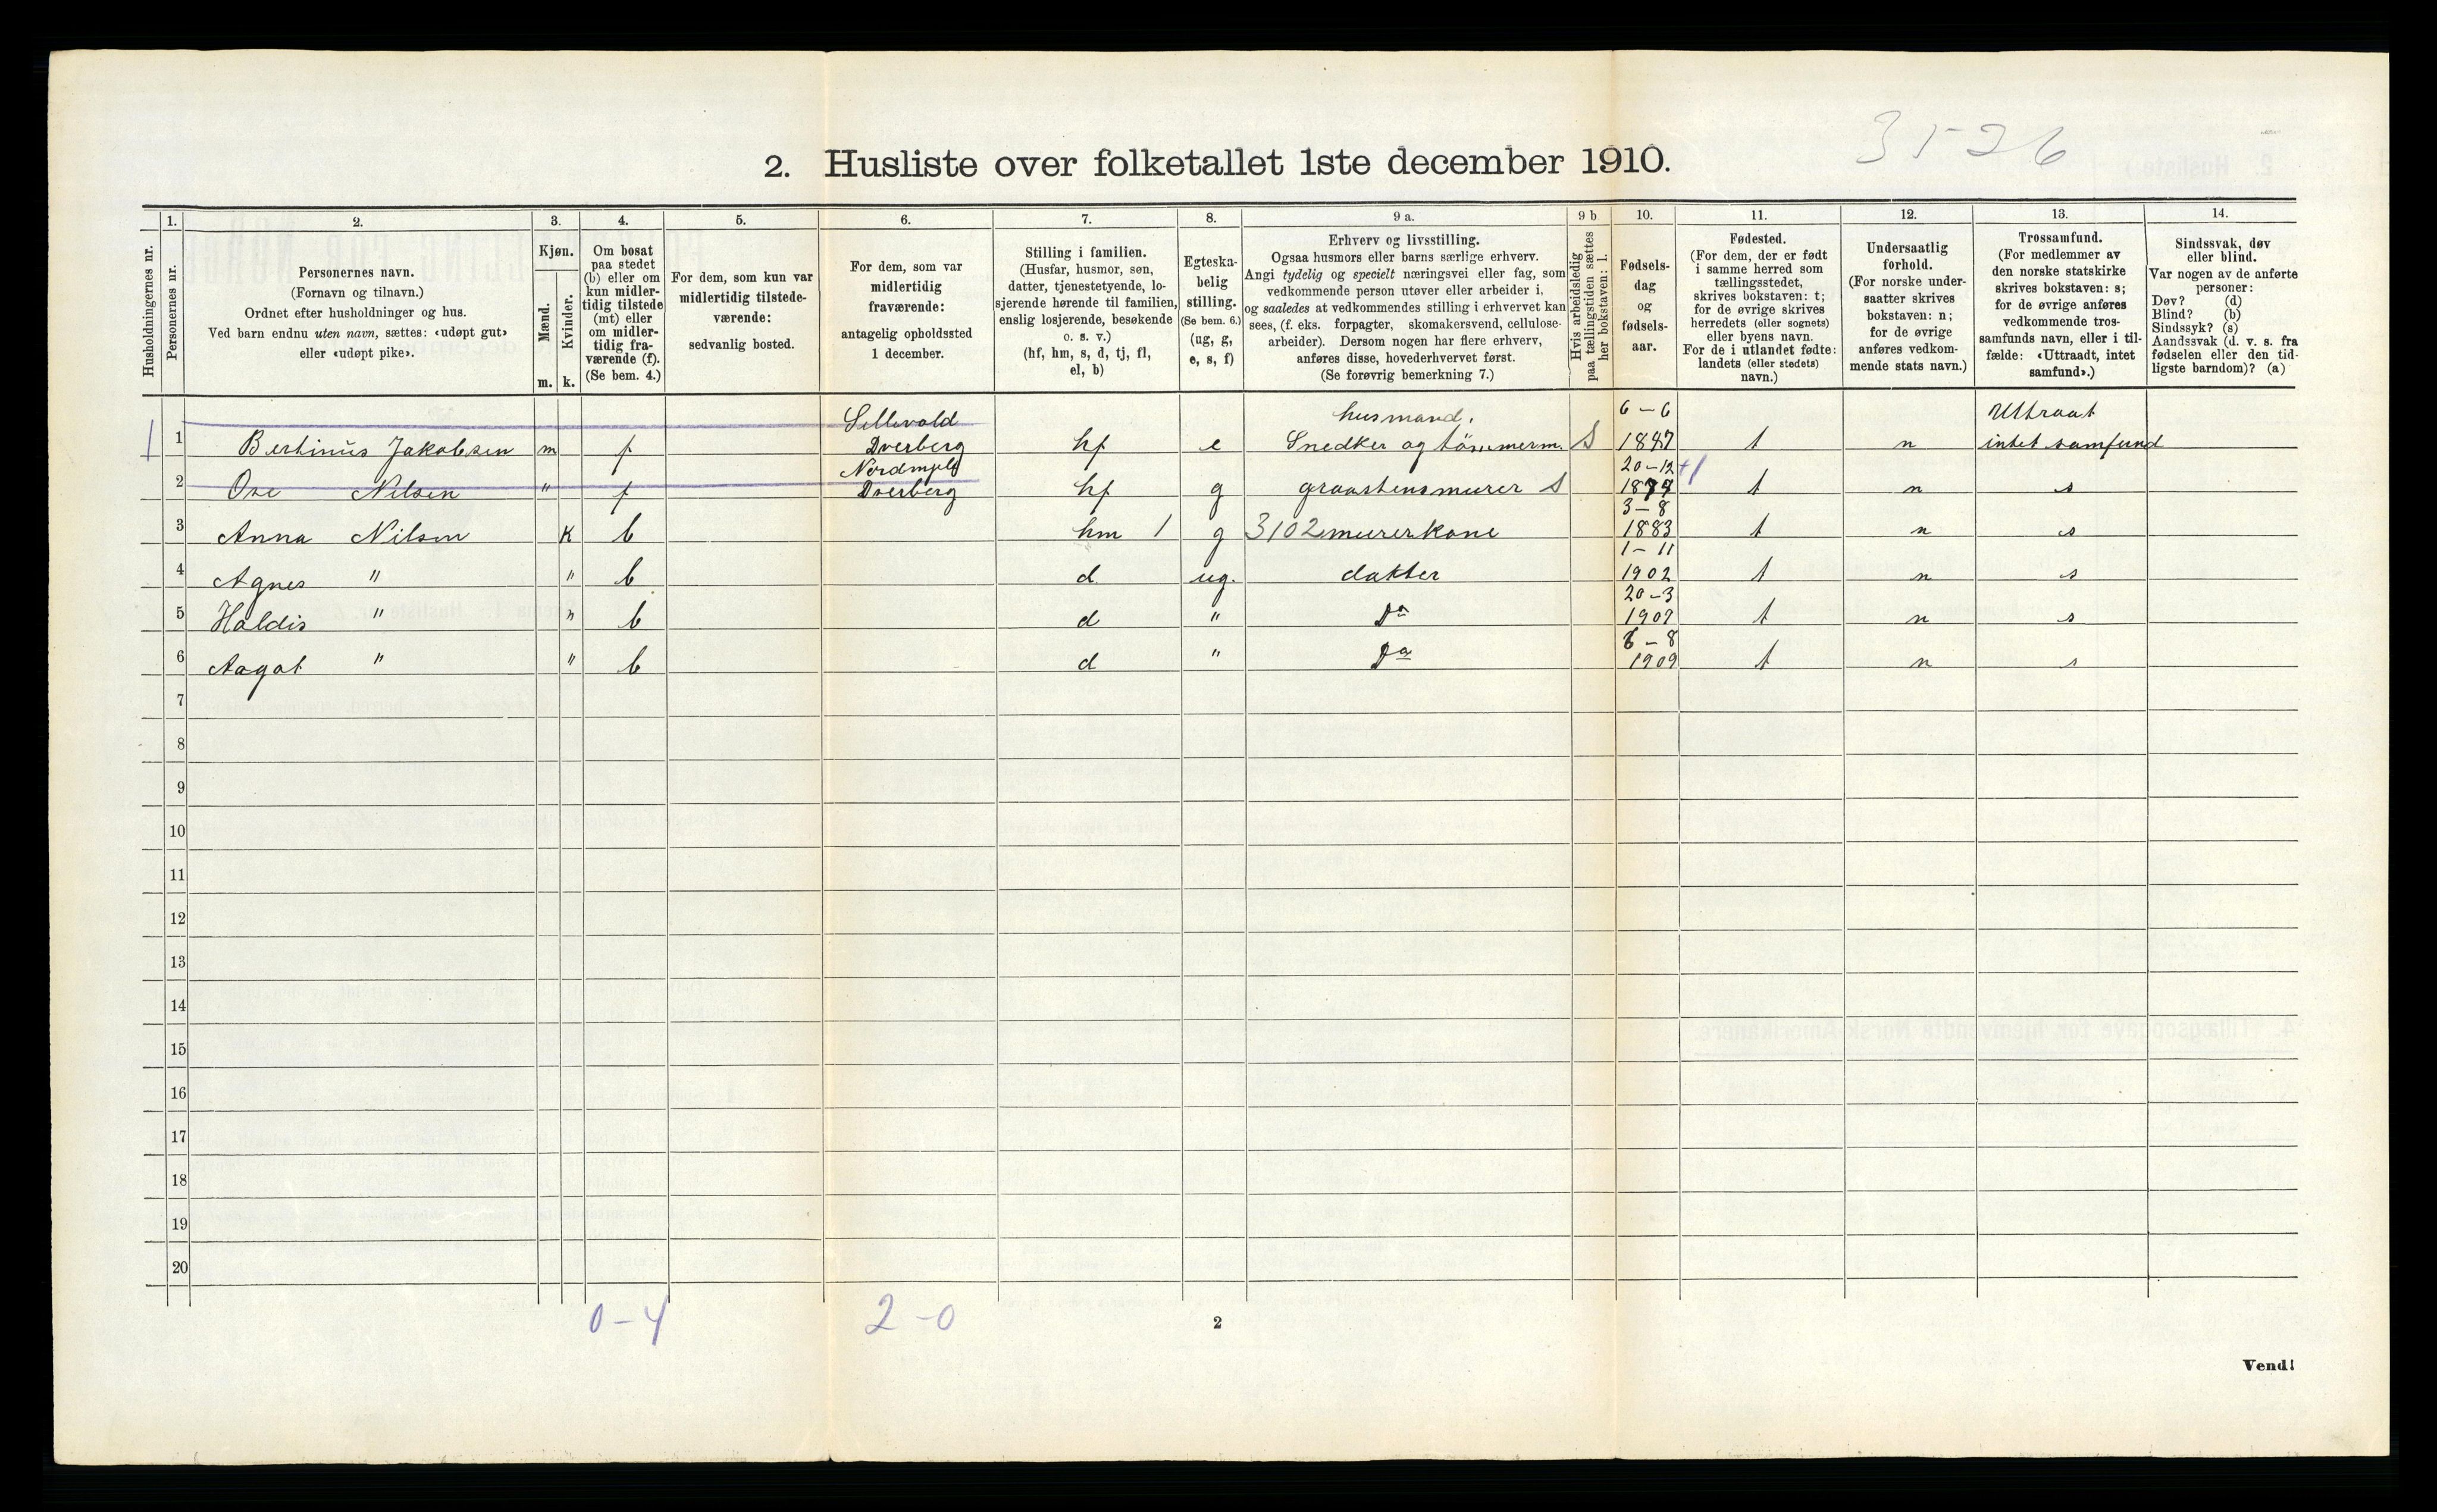 3526
2. Husliste over folketallet 1ste december 1910.
Husholdningernes nr.
1.
Personernes nr.
2.
Personernes navn.
(Fornavn og tilnavn.)
Ordnet efter husholdninger og hus.
Ved barn endnu uten navn, sættes: «udøpt gut»
eller «udøpt pike».
3.
Kjøn.
Mænd.
Kvinder.
m. k.
4.
Om bosat
paa stedet
(b) eller om
kun midler-
tidig tilstede
(mt) eller
om midler-
tidig fra-
værende (f).
(Se bem. 4.)
5.
For dem, som kun var
midlertidig tilstede-
værende:
sedvanlig bosted.
6.
For dem, som var
midlertidig
fraværende:
antagelig opholdssted
1 december.
7.
Stilling i familien.
(Husfar, husmor, søn,
datter, tjenestetyende, lo-
sjerende hørende til familien,
enslig losjerende, besøkende
o. s. v.)
(hf, hm, s, d, tj, fl,
el, b)
8.
Egteska-
belig
stilling.
(Se bem. 6.)
(ug, g,
e, s, f)
9 a.
Erhverv og livsstilling.
Ogsaa husmors eller barns særlige erhverv.
Angi tydelig og specielt næringsvei eller fag, som
vedkommende person utøver eller arbeider i,
og saaledes at vedkommendes stilling i erhvervet kan
sees, (f. eks. forpagter, skomakersvend, cellulose-
arbeider). Dersom nogen har flere erhverv,
anføres disse, hovederhvervet først.
(Se forøvrig bemerkning 7.)
9 b
Hvis arbeidsledig
paa tællingstiden sættes
her bokstaven: l.
10.
Fødsels-
dag
og
fødsels-
aar.
11.
Fødested.
(For dem, der er født
i samme herred som
tællingsstedet,
skrives bokstaven: t;
for de øvrige skrives
herredets (eller sognets)
eller byens navn.
For de i utlandet fødte:
landets (eller stedets)
navn.)
12.
Undersaatlig
forhold.
(For norske under-
saatter skrives
bokstaven: n;
for de øvrige
anføres vedkom-
mende stats navn.)
13.
Trossamfund.
(For medlemmer av
den norske statskirke
skrives bokstaven: s;
for de øvrige anføres
vedkommende tros-
samfunds navn, eller i til-
fælde: «Uttraadt, intet
samfund».)
14.
Sindssvak, døv
eller blind.
Var nogen av de anførte
personer:
Døv? (d)
Blind? (b)
Sindssyk? (s)
Aandssvak (d. v. s. fra
fødselen eller den tid-
ligste barndom)? (a)
Sellevold husmand. 6-6 Uttraat
1 1 Bertinus Jakobsen m f Dverberg hf e Snedker og tömmerm. S 1847 t n intet samfund
20-12 +1
2 Nilsen " f Dverberg hf g graastensmurer S t n s
3-8
3 Anna Nilsen K b hm 1 g 3102 murerkone 1883 t n s
1-11
4 Agnes " " b d ug. dakter 1902 t n s
20-3
5 Haldis " " b d " Do 1907 t n s
6-8
6 Aagot " " b d " Do 1909 t n s
7
8
9
10
11
12
13
14
15
16
17
18
19
20
0-4 2-0
2
Vend!